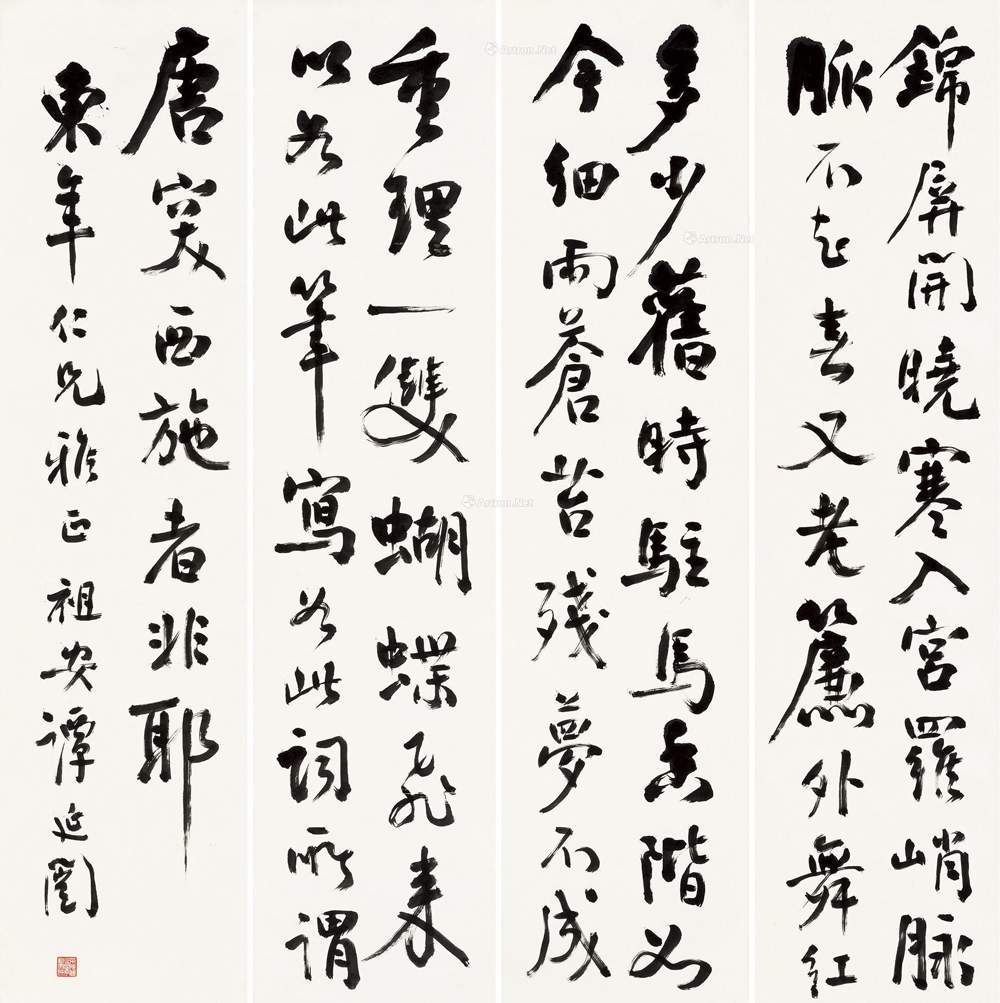 錦屏開曉寒入宮羅峭脉
脈不知春又老簾外舞紅
多少舊時駐馬香階如
今細雨蒼苔殘夢不成
重理一雙蝴蝶飛來
以如此筆寫如此詞所謂
唐突西施者非耶
東年仁兄雅正祖安譚延闓
Artron.Net
Artron.Net
Artron.Net